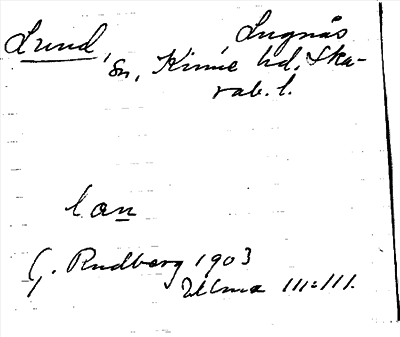 Lund, Lugnås
sn, Kinne hd, Ska-
rab. l.
lon
G. Rudberg 1903
Ullma III:III.